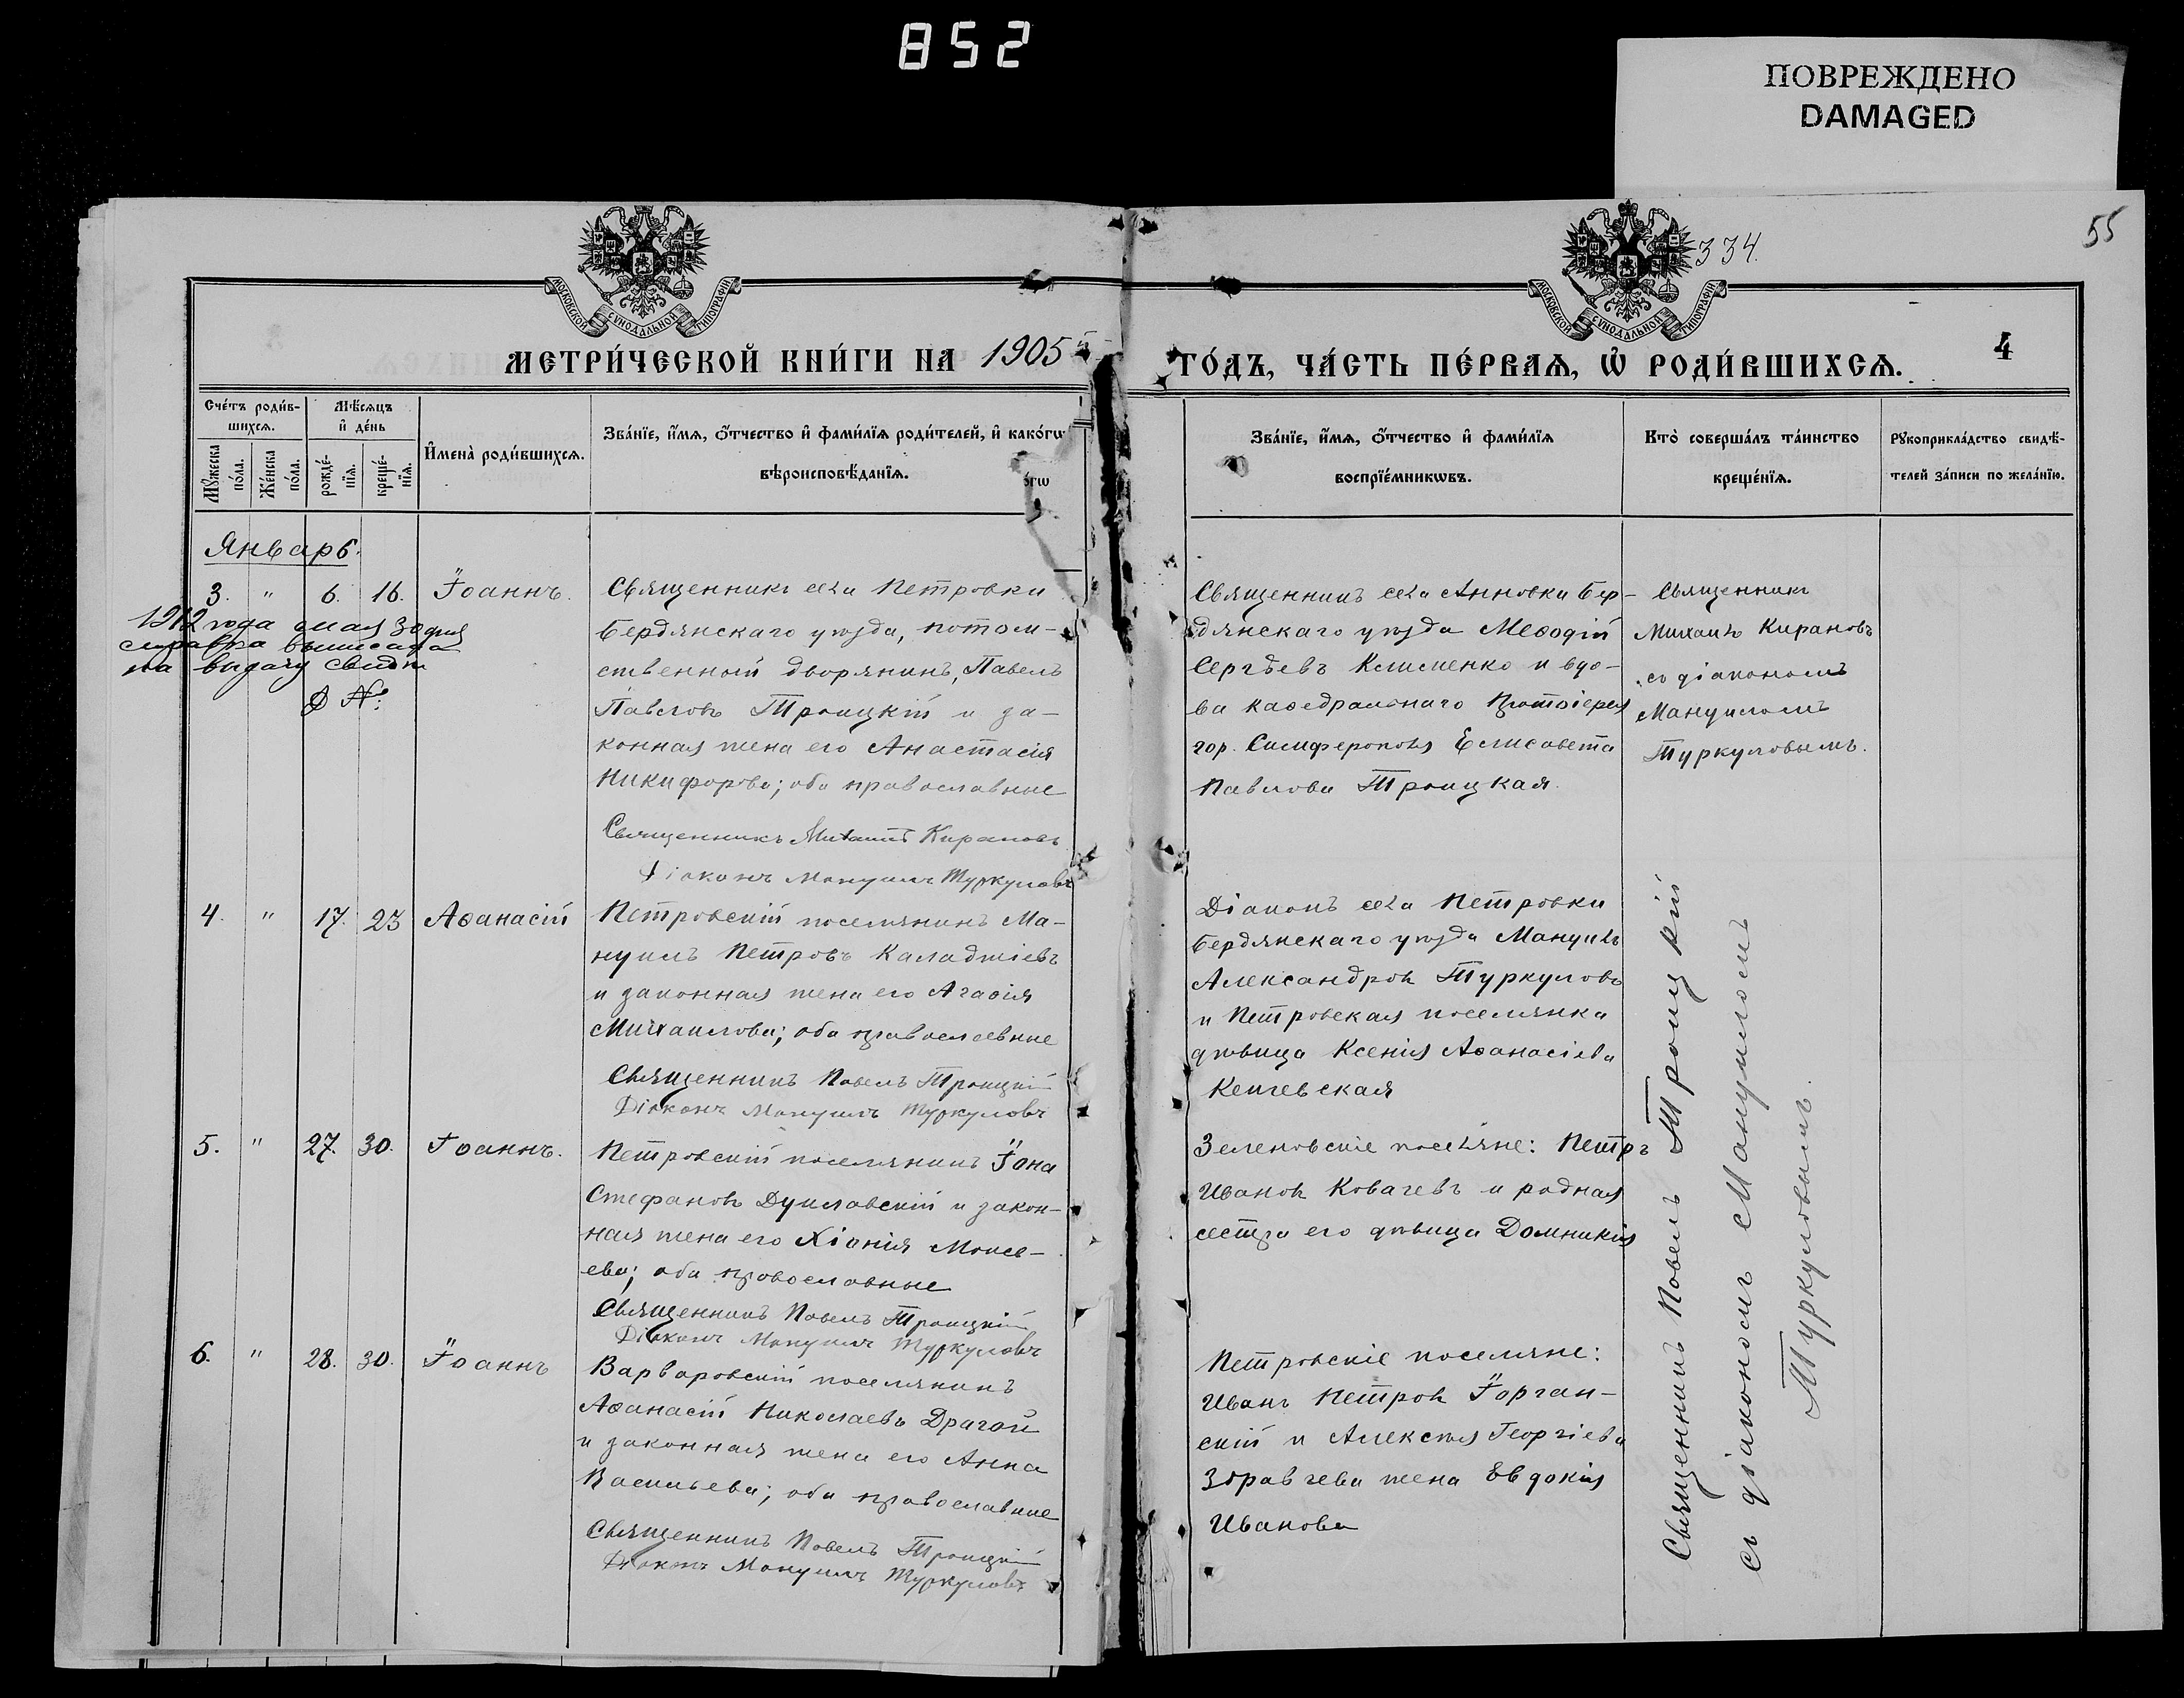 852
ПОВРЕЖДЕНО
DAMAGED
55
334.
МОСКОВСКОЙ СѴНОДАЛЬНОЙ ТИПОГРАФІИ
МОСКОВСКОЙ СѴНОДАЛЬНОЙ ТИПОГРАФІИ
МЕТРИ́ЧЕСКОЙ КНИ́ГИ НА 1905 й
ГО́ДЪ, ЧА́СТЬ ПЕ́РВАѦ, Ѡ҆ РОДИ́ВШИХСѦ.
4
Сче́тъ роди́в-
шихсѧ.
Мꙋ́жеска по́ла.
Же́нска по́ла.
Мѣ́сѧцъ
и҆ де́нь
рожде́-
нїѧ.
креще́-
нїѧ.
И҆мена̀ роди́вшихсѧ.
Зва́нїе, и҆́мѧ, ѻ҆́тчество и҆ фами́лїѧ роди́телей, и҆ како́гѡ
вѣроисповѣ́данїѧ.
Зва́нїе, и҆́мѧ, ѻ҆́тчество и҆ фами́лїѧ
воспрїе́мникѡвъ.
Кто̀ соверша́лъ та́инство
креще́нїѧ.
Рꙋкоприкла́дство свидѣ́-
телей за́писи по жела́нїю.
Январь.
3. " 6. 16. Іоаннъ.
1912 года мая 30 дня
справка выписана
на выдачу свидѣт
Д №:
Священникъ села Петровки
Бердянскаго уѣзда, потом-
ственный дворянинъ, Павелъ
Павловъ Троицкій и за-
конная жена его Анастасія
Никифорова; оба православные
Священникъ Михаилъ Кирановъ
Діаконъ Мануилъ Туркуловъ
Священникъ села Анновки Бер-
дянскаго уѣзда Меѳодій
Сергѣевъ Клименко и вдо-
ва каѳедральнаго Протоіерея
гор. Симферополя Елисавета
Павлова Троицкая.
Священникъ
Михаилъ Кирановъ
со діакономъ
Мануиломъ
Туркуловымъ.
4. " 17. 23 Аѳанасій
Петровскій поселянинъ Ма-
нуилъ Петровъ Каладжіевъ
и законная жена его Агаѳія
Михаилова; оба православные
Священникъ Павелъ Троицкій
Діаконъ Мануилъ Туркуловъ
Діаконъ села Петровки
Бердянскаго уѣзда Мануилъ
Александров Туркуловъ
и Петровская поселянка
дѣвица Ксенія Аѳанасіева
Кенчевская
5. " 27. 30. Іоаннъ.
Петровскій поселянинъ Іона
Стефановъ Душлавскій и закон-
ная жена его Хіонія Моисе-
ева; оба православные
Священникъ Павелъ Троицкій
Діаконъ Мануилъ Туркуловъ
Зеленовскіе поселяне: Петръ
Иванов Ковачевъ и родная
сестра его дѣвица Домникія
6. " 28. 30. Іоаннъ
Варваровскій поселянинъ
Аѳанасій Николаевъ Драгой
и законная жена его Анна
Васильева; оба православные
Священникъ Павелъ Троицкій
Діаконъ Мануилъ Туркуловъ
Петровскіе поселяне:
Иванъ Петров Іорган-
скій и Алексѣя Георгіева
Здравчева жена Евдокія
Иванова
Священникъ Павелъ Троицкій
съ діакономъ Мануиломъ
Туркуловымъ.